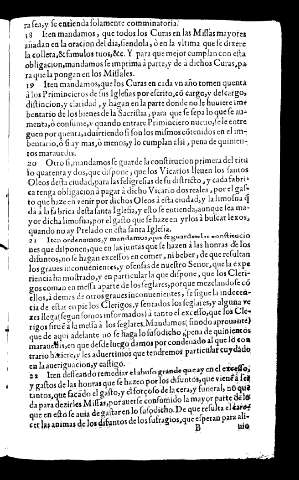 ra sea, y se entienda solamente comminatoria.
18 Iten mandamos, que todos los Curas en las Missas mayores
añadan en la oracion del dia, siendola, ò en la vltima que se dixere
la collecta, & famulos tuos, &c. Y para que mejor cumplan con esta
obligacion, mandamos se imprima à parte, y de à dichos Curas, pa
ra que la pongan en los Missales.
19 Iten mandamos, que los Curas en cada vn año tomen quenta
à los Primicieros de sus Iglesias por escrito, cõ cargo, y descargo,
distincion, y claridad, y hagan en la parte donde no le huviere im
bentario de los bienes de la Sacristia, para que se sepa lo que se au-
menta, ò consume, y quando entrare Primiciero nuevo, se le entre
guen por quenta, advirtiendo si son los mismos cõtenidos en el im-
bentario, ò si ay mas, ò menos, y lo cumplan assi, pena de quinien-
tos maravedis.
20 Otro si, mandamos se guarde la constitucion primera del titu
lo quarenta y dos, que dispone, que los Vicarios lleuen los santos
Oleos desta ciudad, para las feligresias de su districto, y cada fabri-
ca tenga obligacion à pagar à dicho Vicario dos reales, por el gas-
to que haze en venir por dichos Oleos à esta ciudad, y la limosna q̃
dà à la fabrica desta santa Iglesia, y esto se entienda, aunque sea ma-
yor dicha limosna, por el gasto que se haze en yrlos à buscar lexos,
quando no ay Prelado en esta santa Iglesia.
21 Iten ordenamos, y mandamos, que se guarden las constitucio
nes que disponen, que en las juntas que se hazen à las honras de los
difuntos, no se hagan excessos en comer, ni beber, de que resultan
los graues inconuenientes, y ofensas de nuestro Señor, que la expe
riencia ha mostrado, y en particular la que dispone, que los Cleri-
gos coman en messa aparte de los seglares, porque mezclandose cõ
ellos, à demas de otros graues inconuenientes, se sigue la indecen-
cia de estar en pie los Clerigos, y sentados los seglares, y alguna ve
zes llega (segun somos informados) à tanto el excesso, que los Cle-
rigos siruẽ à la mesa à los seglares. Mandamos, siendo aprouante
que de aqui adelante no se haga lo susodicho, pena de quinientos
maravedis, en que desde luego damos por condenado al que lo con
trario hiziere, y les advertimos que tendremos particular cuydado
en la aueriguacion, y castigo.
22 Iten desseando remediar el abuso grande que ay en el excesso,
y gastos de las honras que se hazen por los difuntos, que vienẽ à ser
tantos, que sacado el gasto, y el forçoso de la cera, y funeral, no que
da para dezirles Missas, por auerse consumido la mayor parte de lo
que en esto se auia de gastar en lo susodicho. De que resulta el care-
cer las animas de los difuntos de los sufragios, que esperan para ali-
B